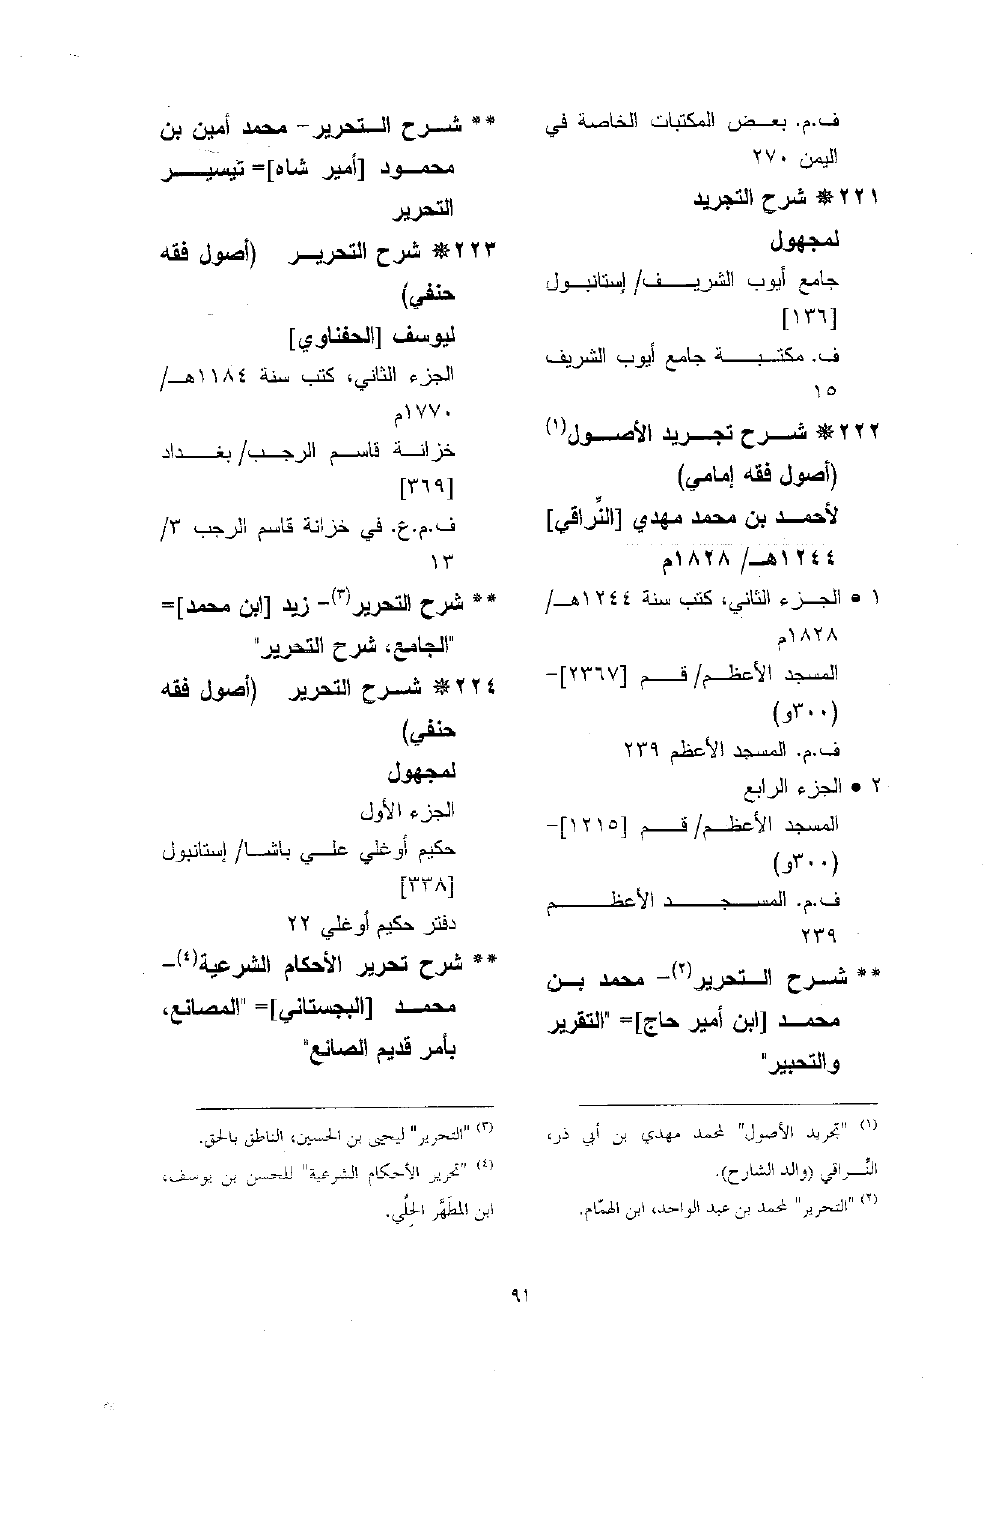 ف.م. بعض المكتبات الخاصة في
اليمن ٢٧٠
٢٢١* شرح التجريد
لمجهول
جامع أيوب الشريف/ إستانبول
[١٣٦]
ف. مكتبة جامع أيوب الشريف
١٥
٢٢٢* شرح تجريد الأصول(١)
(أصول فقه إمامي)
لأحمد بن محمد مهدي [النِّراقي]
١٢٤٤هـ/ ١٨٢٨م
١ • الجزء الثاني، كتب سنة ١٢٤٤هـ/
١٨٢٨م
المسجد الأعظم/ قم [٢٣٦٧]-
(٣٠٠و)
ف.م. المسجد الأعظم ٢٣٩
٢ • الجزء الرابع
المسجد الأعظم/ قم [١٢١٥]-
(٣٠٠و)
ف.م. المسجد الأعظم
٢٣٩
** شرح التحرير(٢)- محمد بن
محمد [ابن أمير حاج]= "التقرير
والتحبير"
(١) "تجريد الأصول" لمحمد مهدي بن أبي ذر،
النِّراقي (والد الشارح).
(٢) "التحرير" لمحمد بن عبد الواحد، ابن الهمّام.
** شرح التحرير- محمد أمين بن
محمود [أمير شاه]= تيسير
التحرير
٢٢٣* شرح التحرير (أصول فقه
حنفي)
ليوسف [الحفناوي]
الجزء الثاني، كتب سنة ١١٨٤هـ/
١٧٧٠م
خزانة قاسم الرجب/ بغداد
[٣٦٩]
ف.م.ع. في خزانة قاسم الرجب ٣/
١٣
** شرح التحرير(٣)- زيد [ابن محمد]=
"الجامع، شرح التحرير"
٢٢٤* شرح التحرير (أصول فقه
حنفي)
لمجهول
الجزء الأول
حكيم أوغلي علي باشا/ إستانبول
[٣٣٨]
دفتر حكيم أُوغلي ٢٢
** شرح تحرير الأحكام الشرعية(٤)-
محمد [البجستاني]= "المصانع،
بأمر قديم الصانع"
(٣) "التحرير" ليحيى بن الحسين، الناطق بالحق.
(٤) "تحرير الأحكام الشرعية" للحسن بن يوسف،
ابن المطَهَّر الحلُي.
٩١